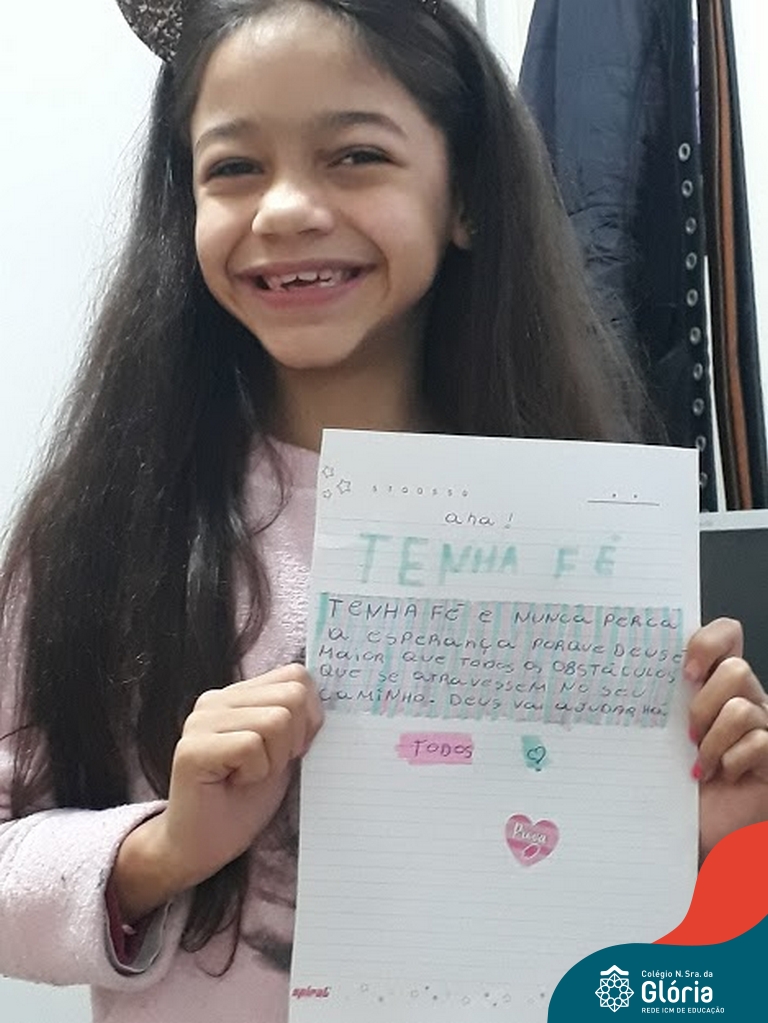 STQQSSD
ana!
TENHA FÉ
TENHA FÉ E NUNCA PERCA
A ESPERANÇA PORQUE DEUS É
MAIOR QUE TODOS OS OBSTÁCULOS
QUE SE ATRAVESSEM NO SEU
CAMINHO. DEUS VAI AJUDAR HÁ
TODOS
spiral
Colégio N. Sra. da
Glória
REDE ICM DE EDUCAÇÃO